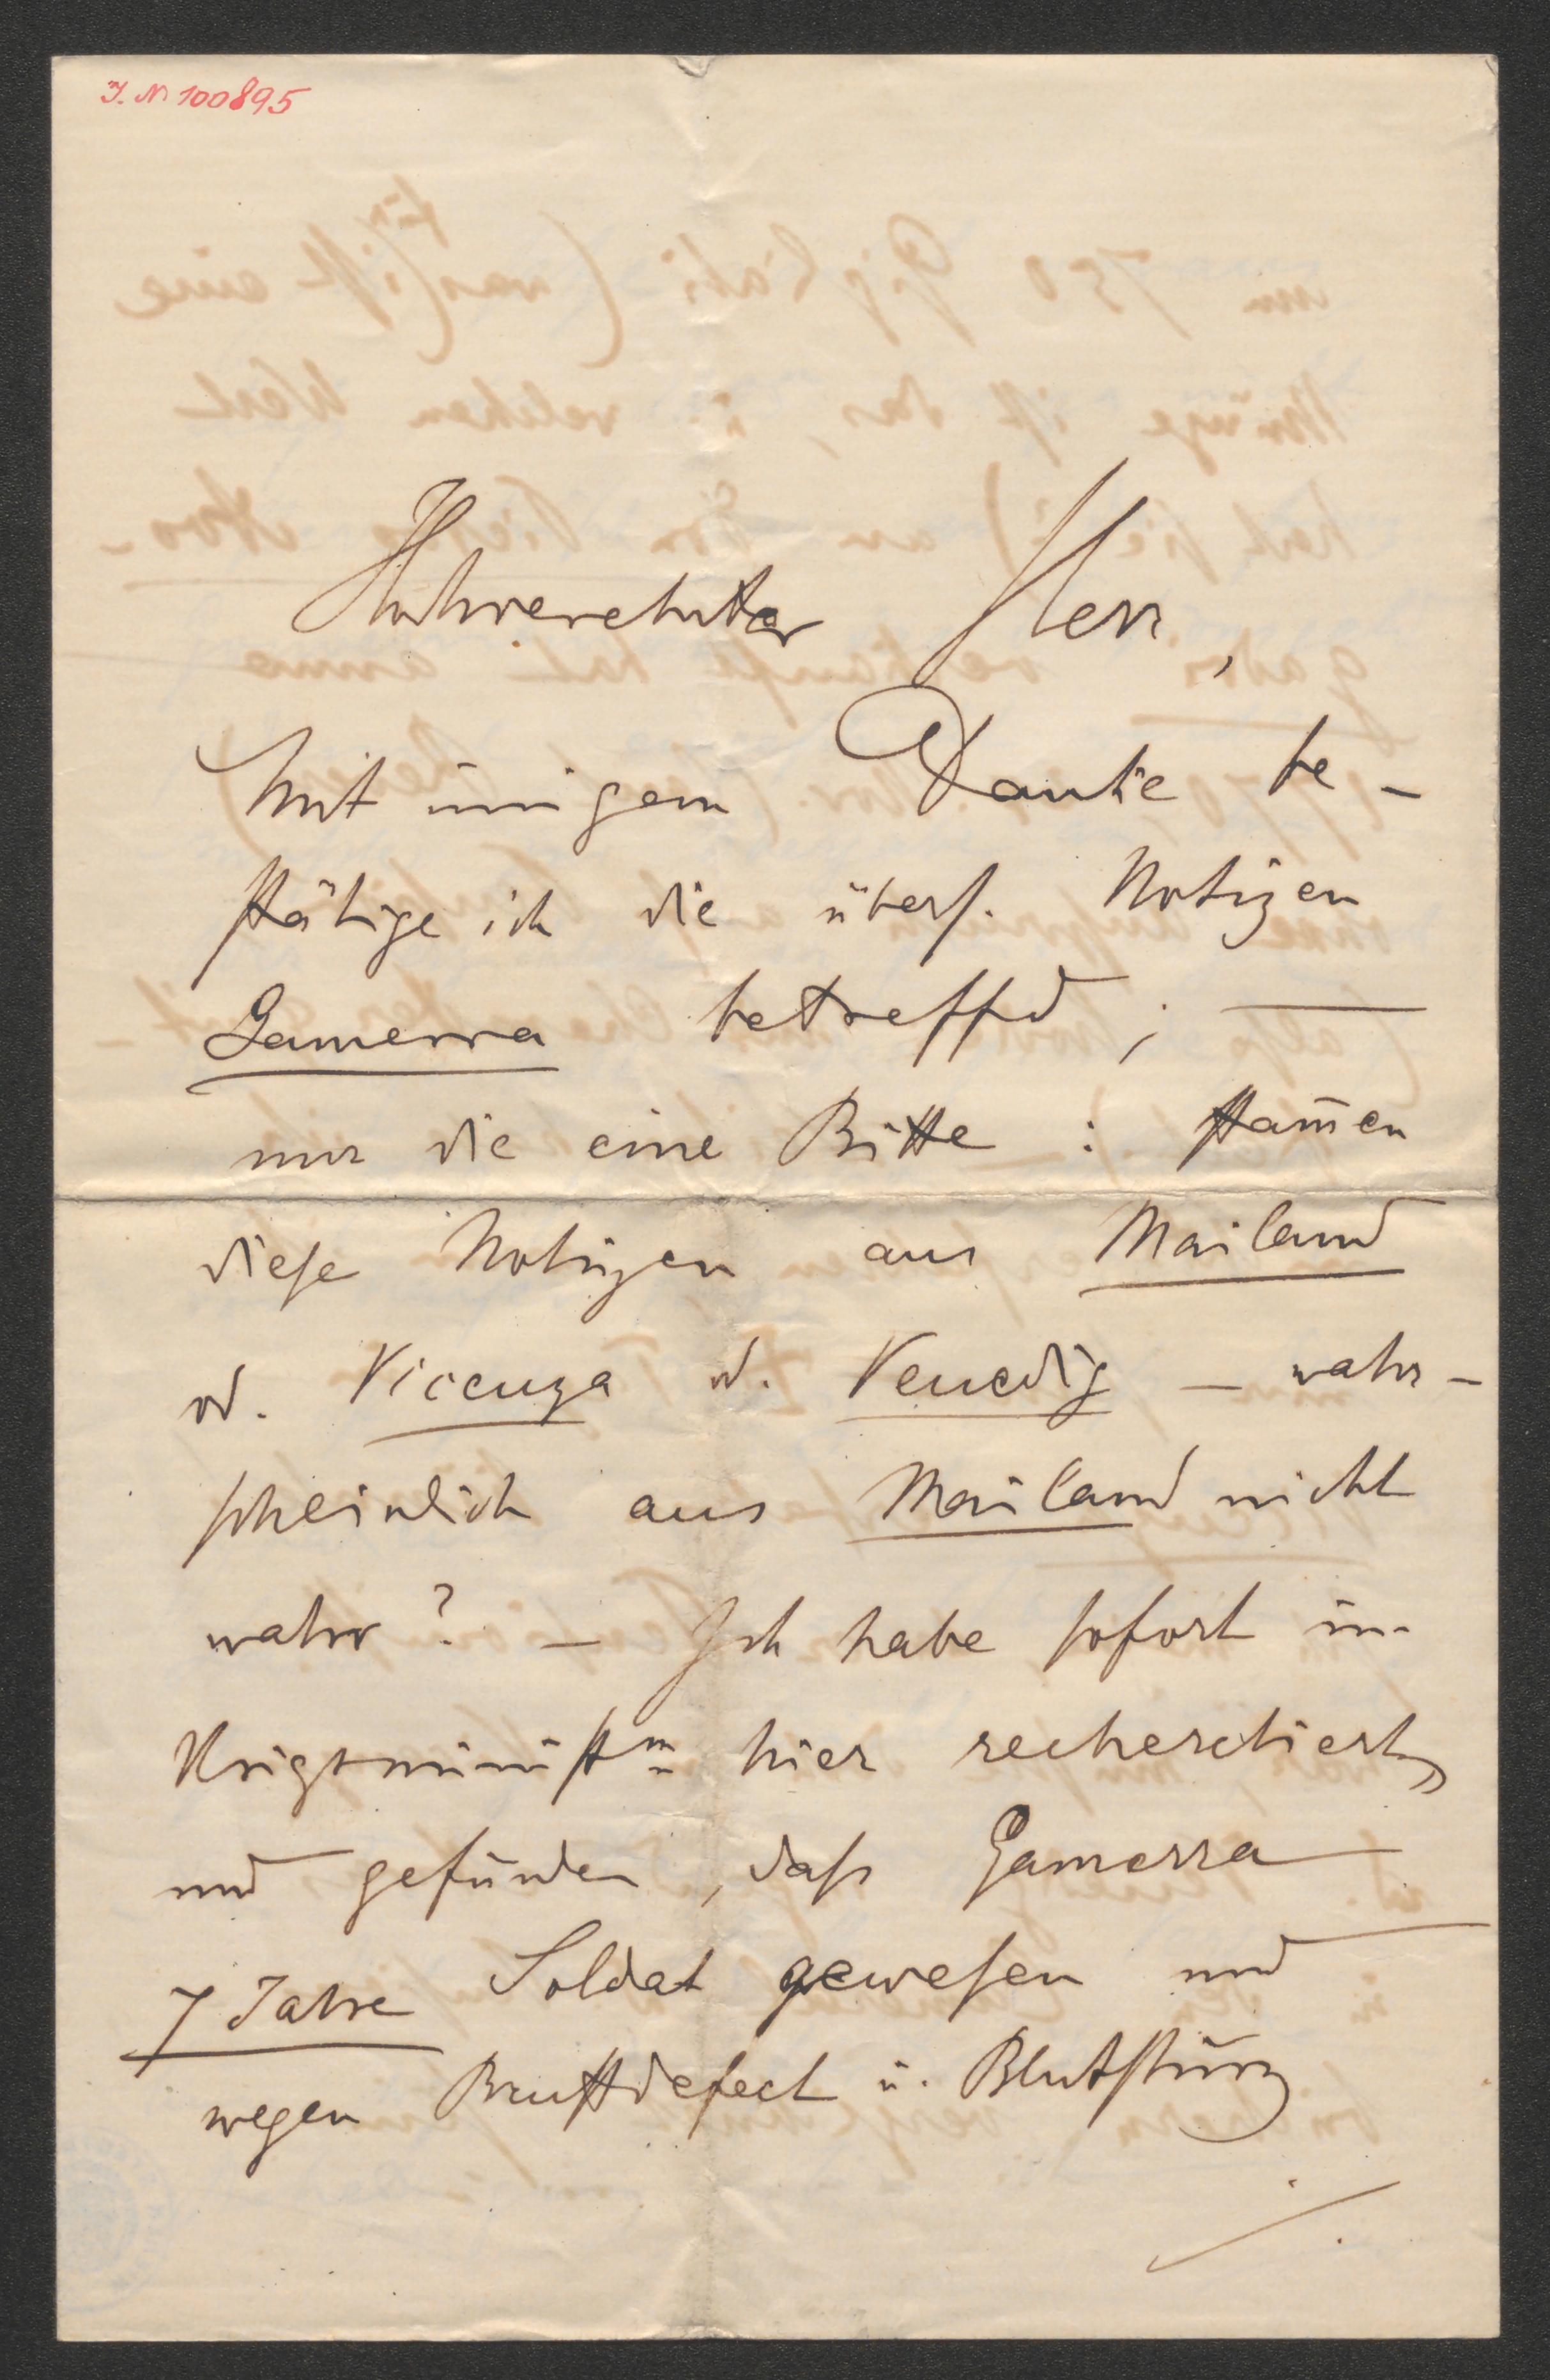 J. N. 100895
Hochverehrter Herr,
Mit innigem Danke be-
stätige ich die übers. Notizen
Gamerra betreffd; —
nur die eine Bitte: stam̄en
diese Notizen aus Mailand
od. Vicenza od. Venedig – wahr-
scheinlich aus Mailand nicht
wahr? – Ich habe sofort im
Krigsministm hier recherchiert,
und gefunden, dass Gamerra
7 Jahre Soldat gewesen und
wegen Brustdefect u. Blutsturz